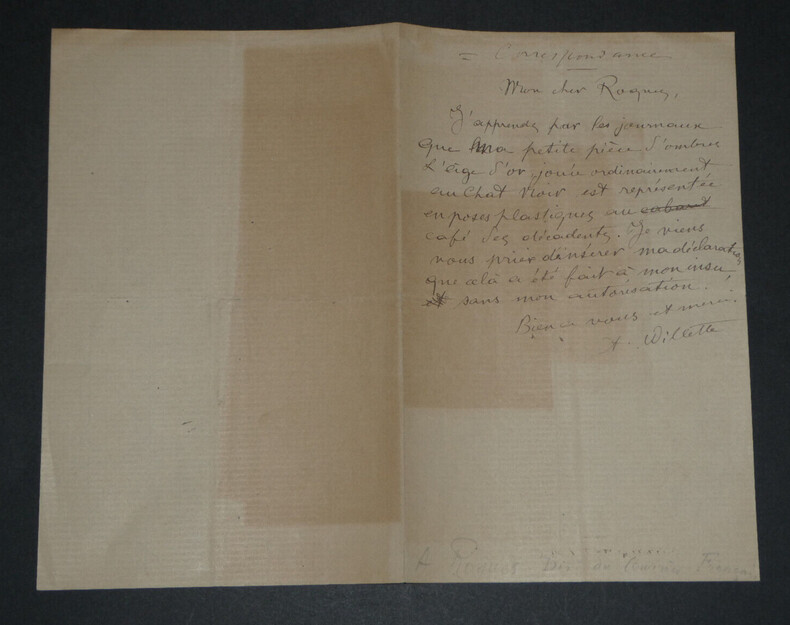 = Correspondance
Mon cher Roques,
J'apprends par les journaux
que ma petite pièce d'ombres
L'âge d'or jouée ordinairement
au Chat Noir est représentée
en poses plastiques au cabaret
café des décadents. Je viens
vous prier d'insérer ma déclaration
que celà a été fait à mon insu
et sans mon autorisation.
Bien à vous et merci.
A. Willette
A Roques Dir du Courrier Français